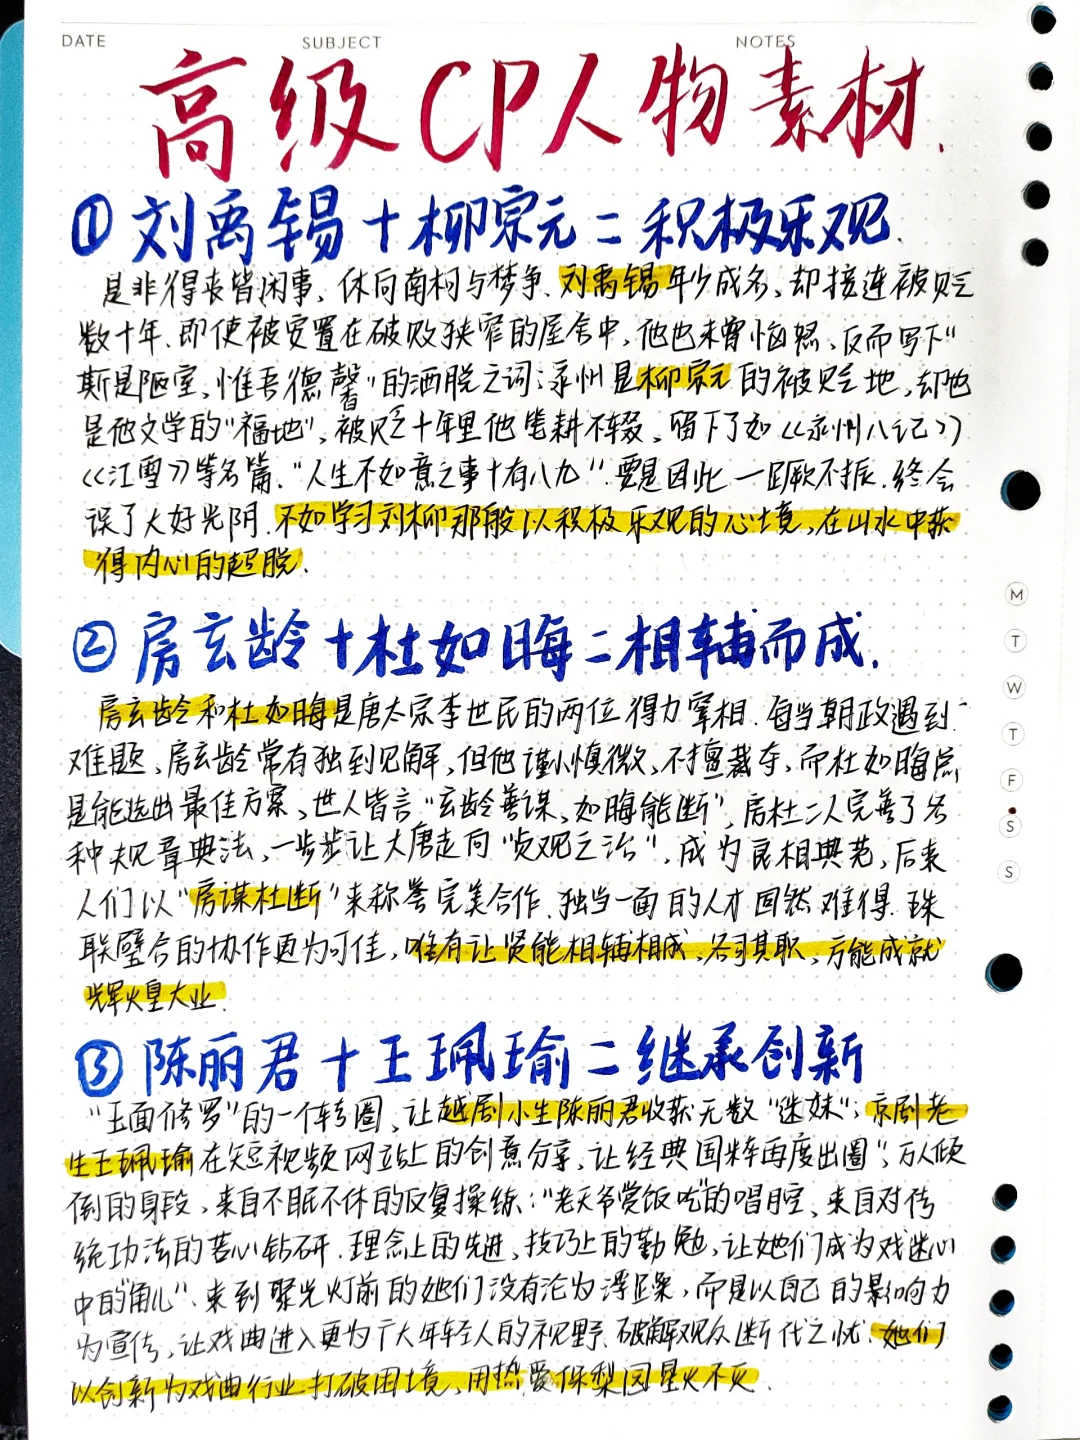 DATE SUBJECT NOTES
高级CP人物素材.
①刘禹锡+柳宗元=积极乐观.
是非得丧皆闲事、休向南柯与梦争、刘禹锡年少成名、却接连被贬
数十年、即使被安置在破败狭窄的屋舍中,他也未曾恼怒、反而写下"
斯是陋室,惟吾德馨"的洒脱之词;永州是柳宗元的被贬地,却也
是他文学的"福地",被贬十年里他笔耕不辍、留下了如《永州八记》
《江雪》等名篇."人生不如意之事十有八九"要是因此一蹶不振.终会
误了大好光阴.不如学习刘柳那般以积极乐观的心境,在山水中获
得内心的超脱.
②房玄龄+杜如晦=相辅而成.
房玄龄和杜如晦是唐太宗李世民的两位得力宰相.每当朝政遇到
难题、房玄龄常有独到见解,但他谨小慎微、不擅裁夺、而杜如晦总
是能选出最佳方案、世人皆言"玄龄善谋、如晦能断",房杜二人完善了各
种规章典法,一步步让大唐走向"贞观之治",成为良相典范,后来
人们以"房谋杜断"来称誉完美合作.独当一面的人才固然难得.珠
联璧合的协作更为可佳,唯有让贤能相辅相成、各司其职、方能成就
辉煌大业.
③陈丽君+王珮瑜=继承创新
"玉面修罗"的一个转圈、让越剧小生陈丽君收获无数"迷妹";京剧老
生王珮瑜在短视频网站上的创意分享,让经典国粹再度出圈";万人倾
倒的身段,来自不眠不休的反复操练;"老天爷赏饭吃"的唱腔、来自对传
统功法的苦心钻研.理念上的先进、技巧上的勤勉,让她们成为戏迷心
中的"角儿".来到聚光灯前的她们没有沦为浮躁,而是以自己的影响力
为宣传,让戏曲进入更为广大年轻人的视野.破解观众断代之忧.她们
以创新为戏曲行业打破困境、用热爱保梨园星火不灭.
M
T
W
T
F
S
S